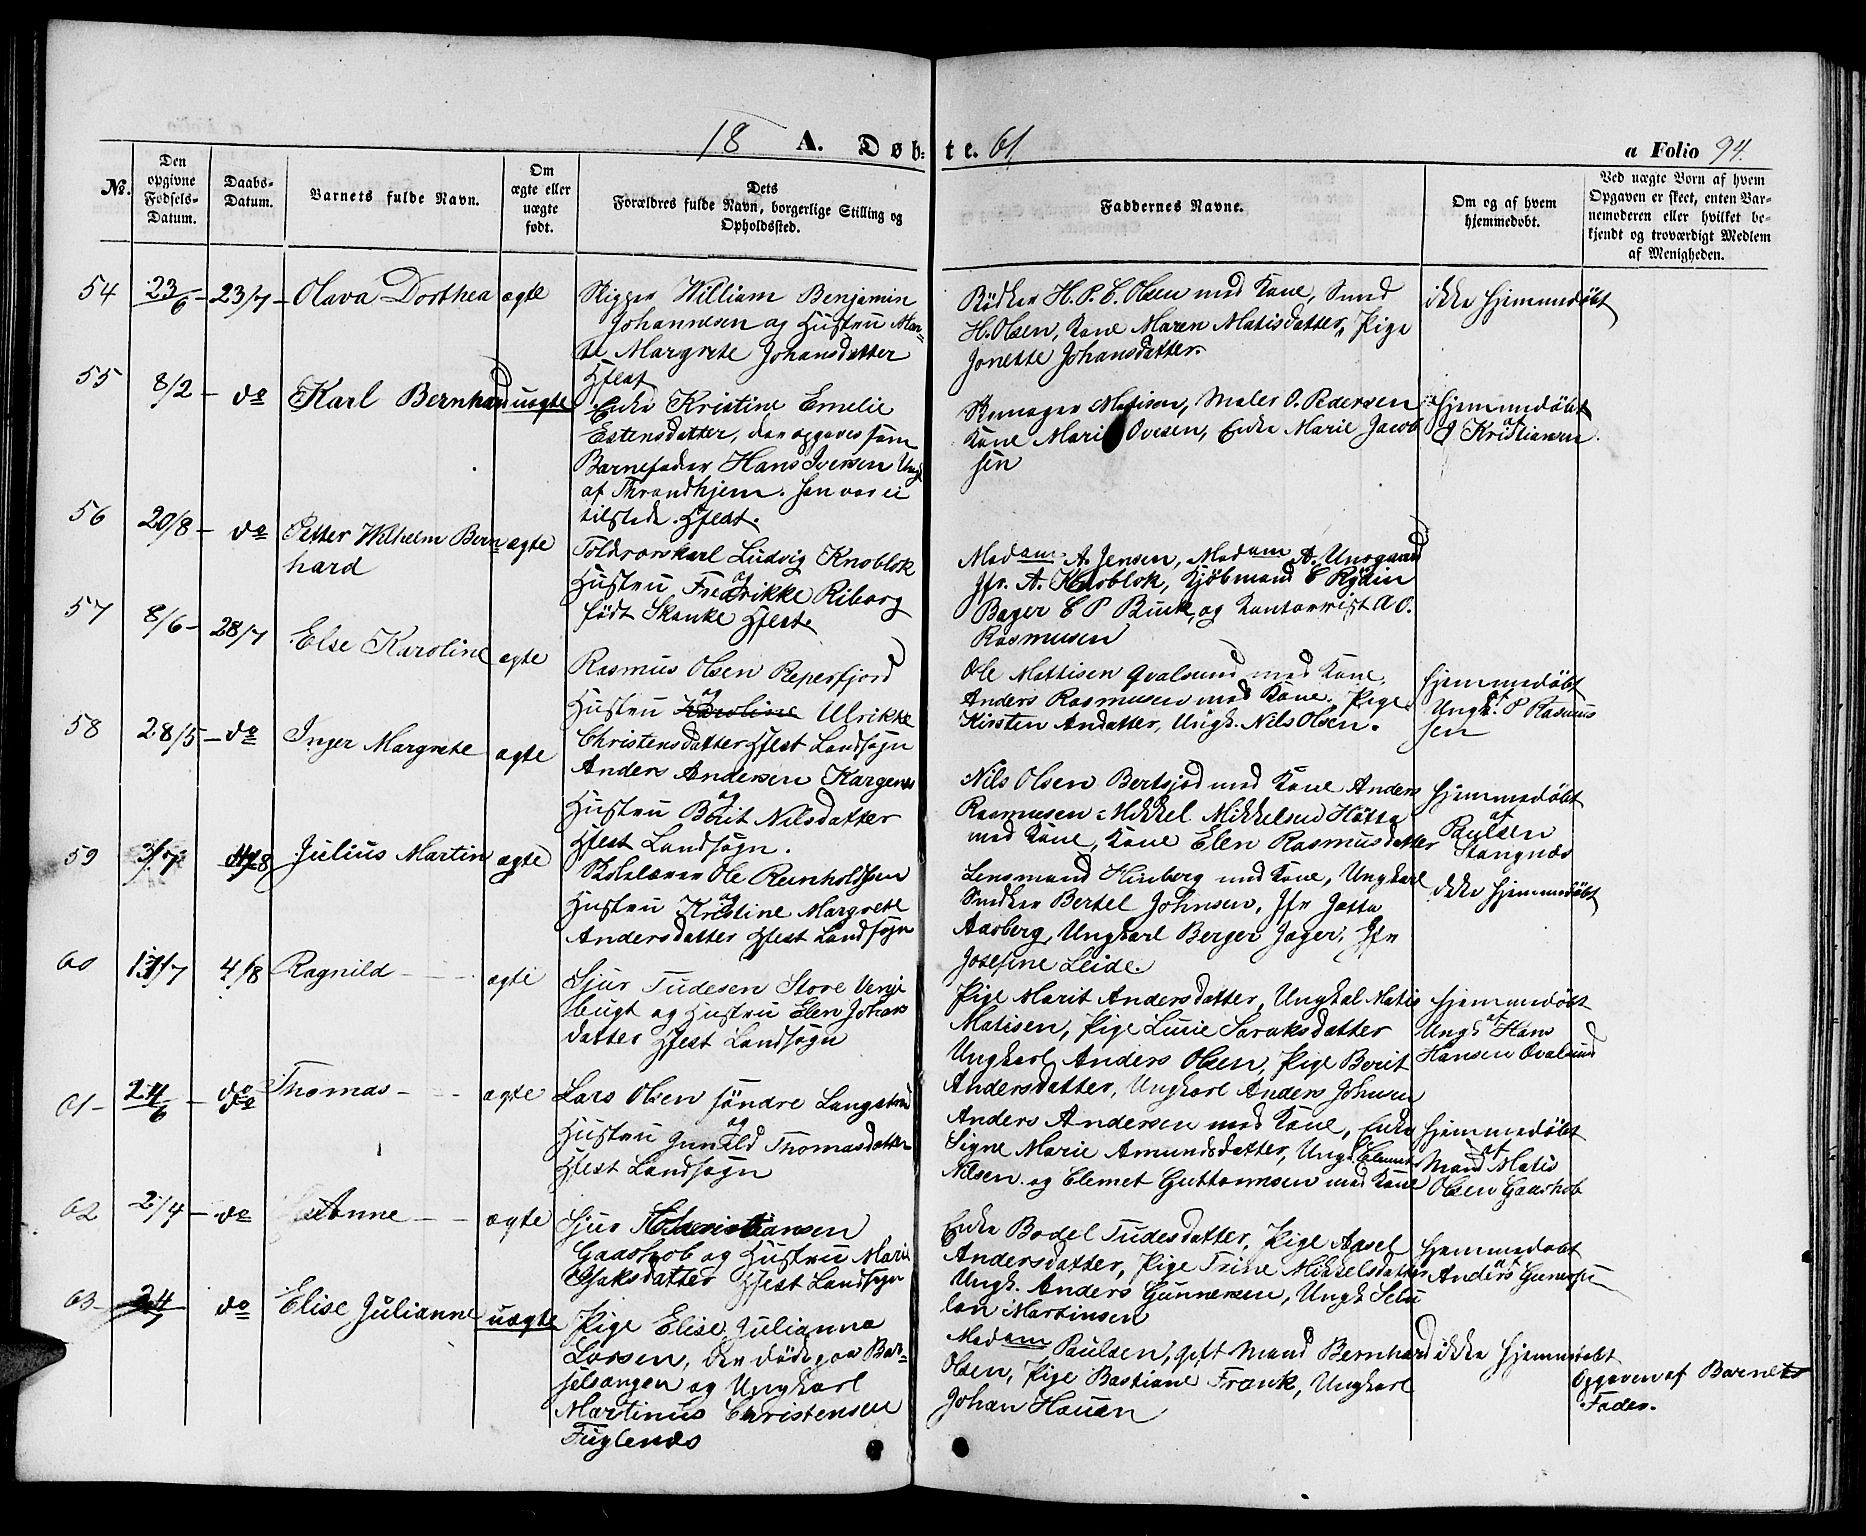 18 A. Døb-te. 61. a Folio 94.
No.
Den opgivne Fødsels-Datum.
Daabs-Datum.
Barnets fulde Navn.
Om ægte eller uægte født.
Dets Forældres fulde Navn, borgerlige Stilling og Opholdssted.
Faddernes Navne.
Om og af hvem hjemmedøbt.
Ved uægte Born af hvem Opgaven er skeet, enten Barnemoderen eller hvilket bekjendt og troværdigt Medlem af Menigheden.
54 23/6 - 23/7 - Olava Dorthea ægte
Skipper William Benjamin
Johannesen og Hustru Mar-
te Margrete Johansdatter
Hfest
Bødker H. P. C. Olsen med Kone, Smed
H. Olsen, Kone Maren Matisdatter, Pige
Jonette Johansdatter.
ikke hjemmedøbt
55 8/2 - do Karl Bernhard uægte
Enke Kristine Emelie
Estensdatter, der opgives som
Barnefader Hans Iversen Ungk
af Throndhjem. han var ei
tilstede. Hfest.
Skomager Matisen, Maler O. Pedersen
Kone Marie Ovesen, Enke Marie Jacob
sen
hjemmedøbt
af J Kristiansen.
56 20/8 - do Petter Wilhelm Bern-
hard
ægte
Toldrorskarl Ludvig Knoblok
og
Hustru Fredrikke Riborg
født Skanke Hfest
Madam A. Jensen, Madam A. Unsgaard
Jfr. A. Knoblok, Kjøbmand C Rydin
Bager C P Buck, og Kontorrist A O.
Rasmusen
57 8/6 - 28/7 Else Karoline ægte
Rasmus Olsen Reperfjord
og
Hustru Karoline Ulrikke
Christensdatter Hfest Landsogn
Ole Mattisen Qvalsund med Kone,
Anders Rasmusen med Kone, Pige
Kirsten Andatter, Ungk. Nils Olsen.
hjemmedøbt
af
Ungk. P Rasmus
sen
58 28/5 - do Inger Margrete ægte
Anders Andersen Kargenes
og
Hustru Berit Nilsdatter
Hfest Landsogn.
Nils Olsen Bertsjod med Kone Anders
Rasmusen Mikkel Mikkelsen Hótta
med Kone, Kone Elen Rasmusdatter
hjemmedøbt
af
Paulsen
Stangnæs
59 3/7 4/8 Julius Martin ægte
Skolelærer Ole Reinholdtsen
og
Hustru Kristine Margrete
Andersdatter Hfest Landsogn
Lensmand Hinberg med Kone, Ungkarl
Snedker Bertel Johnsen, Jfr Jetta
Aasberg, Ungkarl Berger Jager, Jfr
Josefine Leide.
ikke hjemmedøbt
60 13/7 4/8 Ragnild - ægte
Sjur Tudesen Store Verje
bugt og Hustru Elen Johans
datter Hfest Landsogn
Pige Marit Andersdatter, Ungkal Matis
Matisen, Pige Lusie Saraksdatter
Ungkarl Anders Olsen, Pige Berit
Andersdatter, Ungkarl Anders Johnsen
hjemmedøbt
af
Ungk Hans
Hansen Qvalsund
61 - 24/6 - do Thomas - ægte
Lars Olsen søndre Langstrand
og
Hustru Gunild Thomasdatter
Hfest Landsogn
Anders Andersen med Kone, Enke
Signe Marie Amundsdatter, Ungk Clemet
Nilsen og Clemet Guttormsen med Kone
hjemmedøbt
af
Mand Matis
Olsen Gaashob
62 2/4 - do Anne - - ægte
Sjur Christiansen
Gaashob og Hustru Marie
Isaksdatter Hfest Landsogn
Enke Bodel Tudesdatter, Pige Aasel
Andersdatter, Pige Trine Mikkelsdatter
Ungk. Anders Gunnersen, Ungk Selu
lon Martinsen
hjemmedøbt
af
Anders Gunersen
63 - 24/7 do Elise Julianne uægte
Pige Elise Julianna
Larsen, der døde paa Bar-
selsengen og Ungkarl
Martinus Christensen
Fuglenæs
Madam Paulsen, gift Mand Bernhard
Olsen, Pige Bastiane Frank, Ungkarl
Johan Hauan
ikke hjemmedøbt
Opgaven af Barnets
Fader.